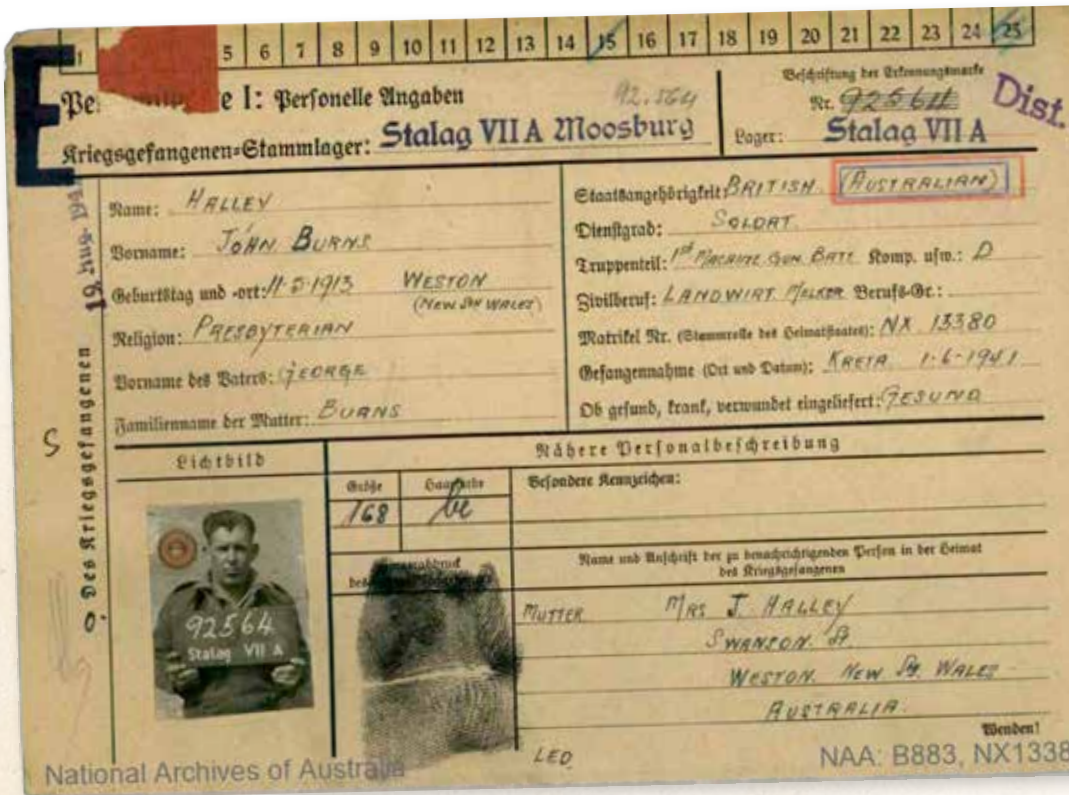 1 5 6 7 8 9 10 11 12 13 14 15 16 17 18 19 20 21 22 23 24 25
E
Pe e I: Personelle Angaben
92.564
Beschriftung der Erkennungsmarke
Nr. 92564
Dist.
Kriegsgefangenen-Stammlager: Stalag VII A Moosburg
Lager: Stalag VII A
Des Kriegsgefangenen
19. Aug. 194
S
Name: HALLEY
Vorname: JOHN BURNS
Geburtstag und -ort: 11-5-1913 WESTON
(NEW Sth WALES)
Religion: PRESBYTERIAN
Vorname des Vaters: GEORGE
Familienname der Mutter: BURNS
Staatsangehörigkeit: BRITISH (AUSTRALIAN)
Dienstgrad: SOLDAT.
Truppenteil: 1st MACHINE GUN BATT Komp. usw.: D
Zivilberuf: LANDWIRT MELKER Berufs-Gr.:
Matrikel Nr. (Stammrolle des Heimatstaates): NX 13380
Gefangennahme (Ort und Datum): KRETA 1-6-1941
Ob gesund, krank, verwundet eingeliefert: GESUND
Lichtbild
Nähere Personalbeschreibung
Größe
168
Besondere Kennzeichen:
92564
Stalag VII A
Name und Anschrift der zu benachrichtigenden Person in der Heimat
des Kriegsgefangenen
MUTTER MRS J. HALLEY
SWANSON St.
WESTON. NEW Sth. WALES
AUSTRALIA.
Wenden!
LED
National Archives of Australia
NAA: B883, NX1338